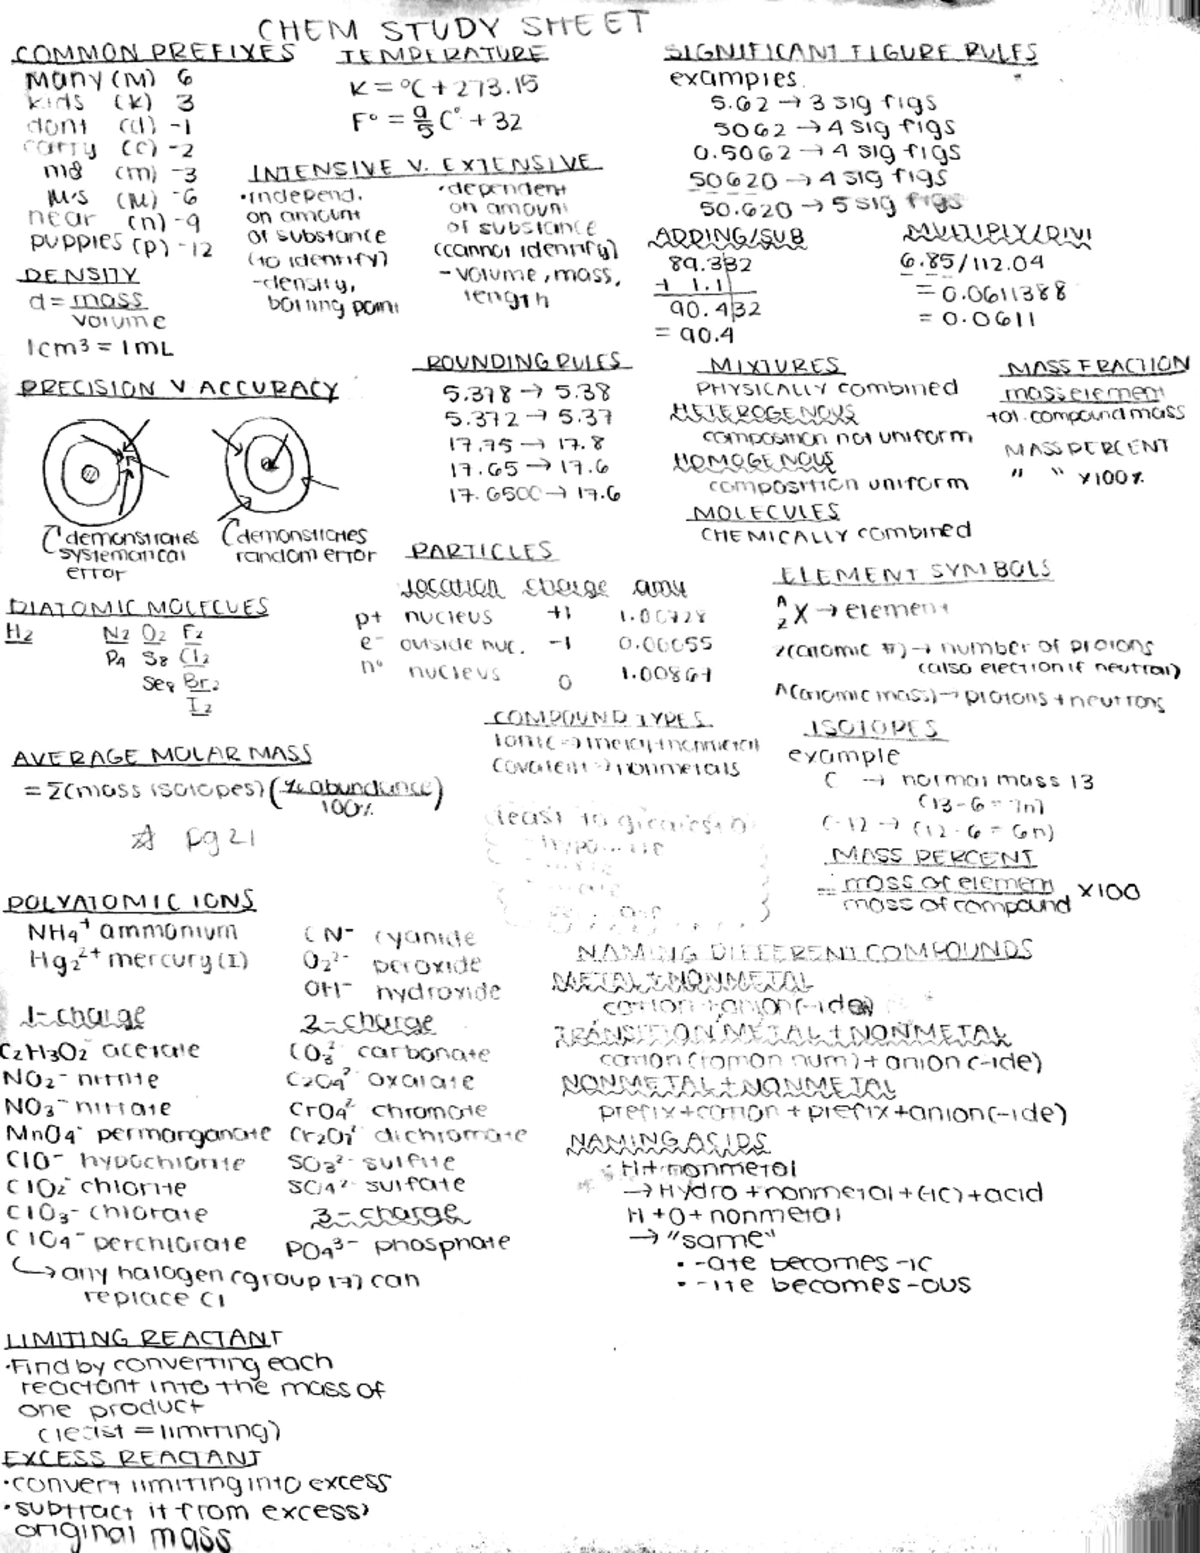 CHEM STUDY SHEET
COMMON PREFIXES
Many (M) 6
kids (k) 3
dont (d) -1
carry (c) -2
(m) -3
(M) -6
near (n) -9
puppies (p) -12
DENSITY
d = mass
volume
1cm³ = 1mL
TEMPERATURE
K = °C + 273.15
F° = 9/5 C° + 32
INTENSIVE V. EXTENSIVE
•independ.
on amount
of substance
(to identify)
-density,
boiling point
•dependent
on amount
of substance
(cannot identify)
-volume, mass,
length
SIGNIFICANT FIGURE RULES
examples.
5.62 → 3 sig figs
5062 → 4 sig figs
0.5062 → 4 sig figs
50620 → 4 sig figs
50.620 → 5 sig figs
ADDING/SUB
89.332
+ 1.1
90.432
= 90.4
MULTIPLY/DIVI
6.85/112.04
= 0.0611388
= 0.0611
PRECISION V ACCURACY
demonstrates
systematical
error
demonstrates
random error
ROUNDING RULES
5.378 → 5.38
5.372 → 5.37
17.75 → 17.8
17.65 → 17.6
17.6500 → 17.6
MIXTURES
PHYSICALLY combined
HETEROGENOUS
composition not uniform
HOMOGENOUS
composition uniform
MOLECULES
CHEMICALLY combined
MASS FRACTION
mass element
tot. compound mass
MASS PERCENT
" " x100%
DIATOMIC MOLECUES
H₂ N₂ O₂ F₂
P₄ S₈ Cl₂
Se₈ Br₂
I₂
PARTICLES
location charge amu
p+ nucleus +1
e⁻ outside nuc. -1
n° nucleus 0
ELEMENT SYMBOLS
A
Z X → element
Z(atomic #) → number of protons
(also election if neutral)
A(atomic mass) → protons + neutrons
COMPOUND TYPES
Ionic → metal + nonmetal
Covalent → nonmetals
ISOTOPES
example
C → normal mass 13
(13-6 = 7n)
C-12 → (12-6 = 6n)
MASS PERCENT
= mass of element x100
mass of compound
AVERAGE MOLAR MASS
= Σ(mass isotopes)(% abundance)
100%
☆ pg 21
least to greatest
POLYATOMIC IONS
NH₄⁺ ammonium
Hg₂²⁺ mercury(I)
CN⁻ cyanide
O₂²⁻ peroxide
OH⁻ hydroxide
1-charge
C₂H₃O₂⁻ acetate
NO₂⁻ nitrite
NO₃⁻ nitrate
MnO₄⁻ permanganate
ClO⁻ hypochlorite
ClO₂⁻ chlorite
ClO₃⁻ chlorate
ClO₄⁻ perchlorate
↳ any halogen (group 17) can
replace Cl
2-charge
CO₃²⁻ carbonate
C₂O₄²⁻ oxalate
CrO₄²⁻ chromate
Cr₂O₇²⁻ dichromate
SO₃²⁻ sulfite
SO₄²⁻ sulfate
3-charge
PO₄³⁻ phosphate
NAMING DIFFERENT COMPOUNDS
METAL + NONMETAL
cation + anion(-ide)
TRANSITION METAL + NONMETAL
cation (roman num) + anion (-ide)
NONMETAL + NONMETAL
prefix + cation + prefix + anion(-ide)
NAMING ACIDS
H + nonmetal
→ Hydro + nonmetal + (-ic) + acid
H + O + nonmetal
→ "same"
• -ate becomes -ic
• -ite becomes -ous
LIMITING REACTANT
•Find by converting each
reactant into the mass of
one product
(least = limiting)
EXCESS REACTANT
•convert limiting into excess
•subtract it from excess'
original mass